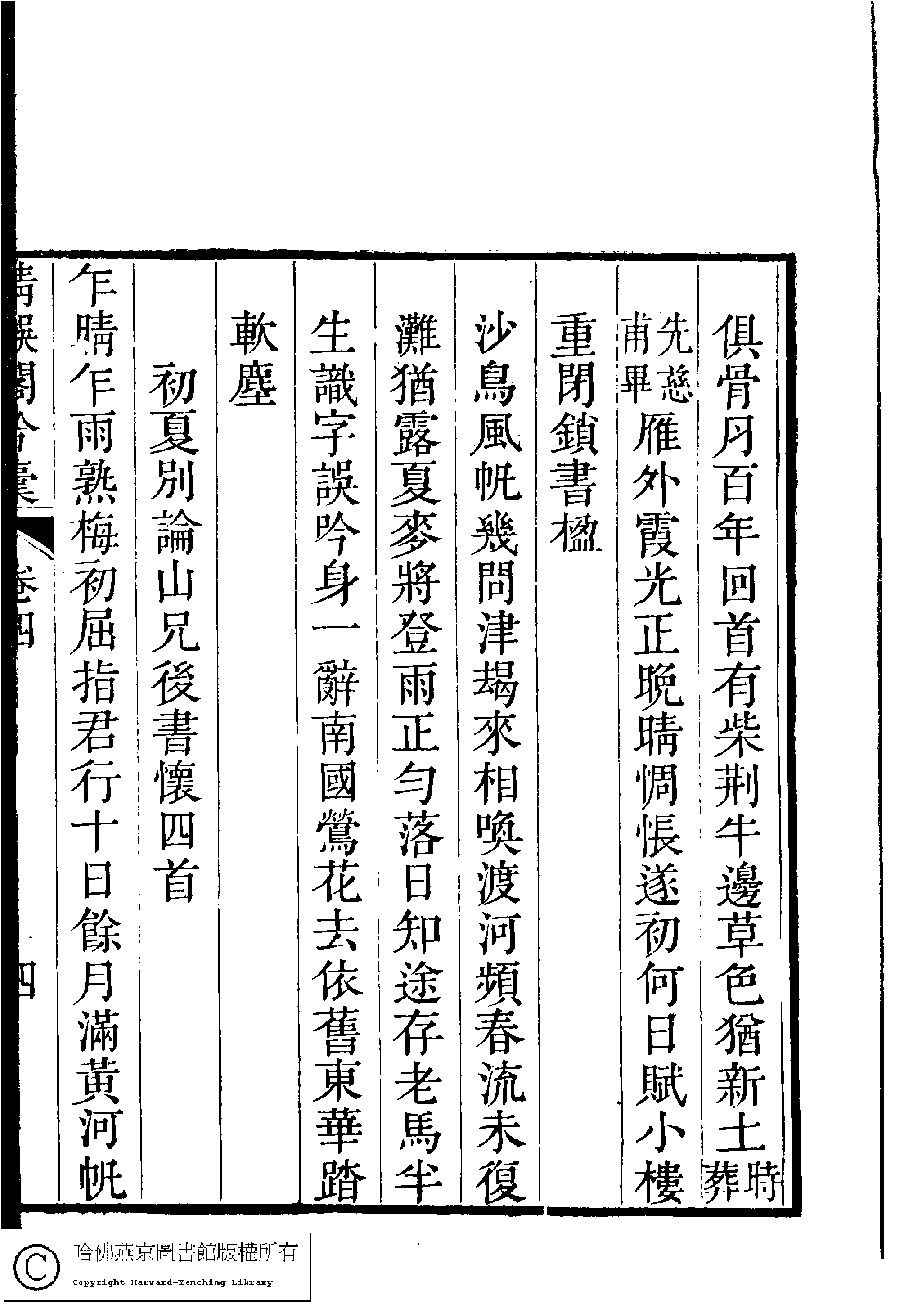 俱骨月百年回首有柴荆牛邊草色猶新土時葬
先慈甫畢雁外霞光正晚晴惆悵遂初何日賦小樓
重閉鎖書楹
沙鳥風帆幾問津朅來相喚渡河頻春流未復
灘猶露夏麥將登雨正勻落日知途存老馬半
生識字誤吟身一辭南國鶯花去依舊東華踏
軟塵
初夏別論山兄後書懷四首
乍晴乍雨熟梅初屈指君行十日餘月滿黃河帆
卷四
四
哈佛燕京圖書館版權所有
Copyright Harvard-Yenching Library